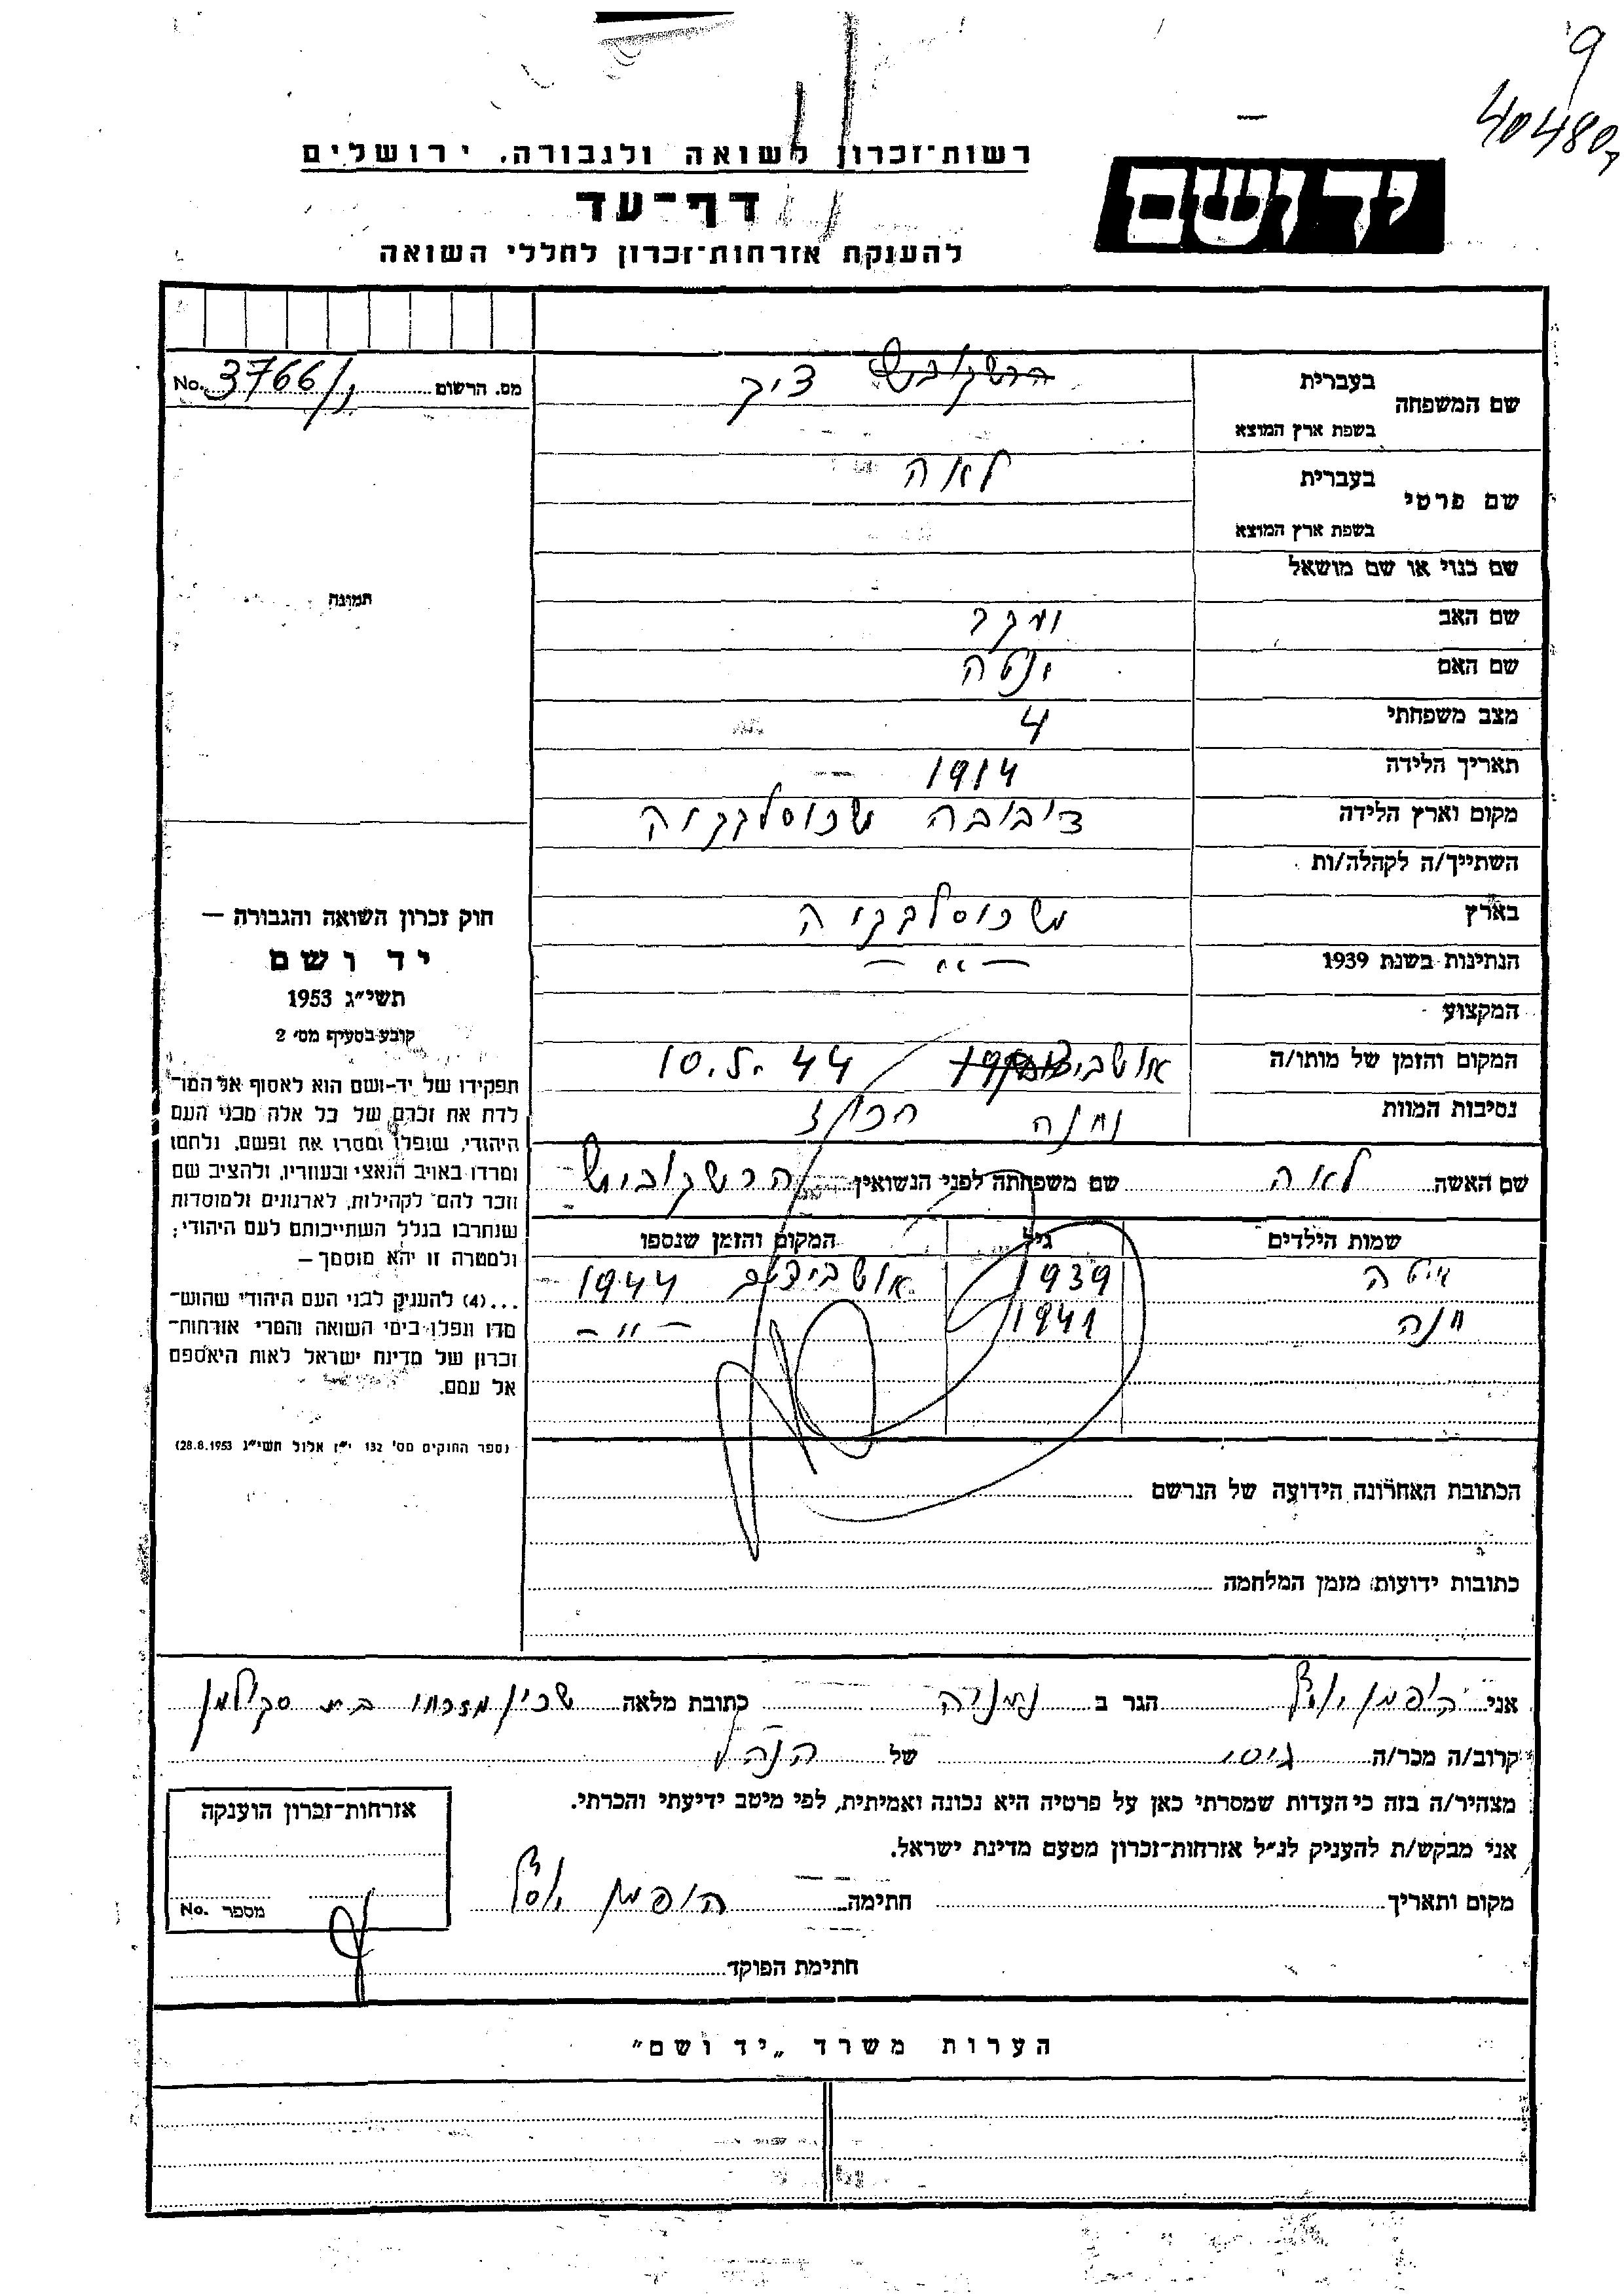 9
40480
רשות־זכרון לשואה ולגבורה, ירושלים
יד ושם
דף־עד
להענקת אזרחות־זכרון לחללי השואה
מס. הרשום No. 3766/
שם המשפחה בעברית הרשקוביץ
בשפת ארץ המוצא
שם פרטי בעברית לאה
בשפת ארץ המוצא
שם כנוי או שם מושאל
תמונה
שם האב
שם האם
מצב משפחתי 4
תאריך הלידה 1914
מקום וארץ הלידה
השתייך/ה לקהלה/ות
בארץ
הנתינות בשנת 1939 — " —
המקצוע
המקום והזמן של מותו/ה 10.5.44
נסיבות המוות
שם האשה לאה שם משפחתה לפני הנשואין הרשקוביץ
שמות הילדים גיל המקום והזמן שנספו
1939 1944
חנה 1941 — " —
הכתובת האחרונה הידועה של הנרשם
כתובות ידועות מזמן המלחמה
חוק זכרון השואה והגבורה —
יד ושם
תשי״ג 1953
קובע בסעיף מס׳ 2
תפקידו של יד-ושם הוא לאסוף אל המו־
לדת את זכרם של כל אלה מבני העם
היהודי, שנפלו ומסרו את נפשם, נלחמו
ומרדו באויב הנאצי ובעוזריו, ולהציב שם
וזכר להם, לקהילות, לארגונים ולמוסדות
שנחרבו בגלל השתייכותם לעם היהודי;
ולמטרה זו יהא מוסמך —
...(4) להעניק לבני העם היהודי שהוש־
מדו ונפלו בימי השואה והמרי אזרחות־
זכרון של מדינת ישראל לאות היאספם
אל עמם.
(ספר החוקים מס׳ 132 י״ז אלול תשי״ג 28.8.1953)
אני הופמן הגר ב נתניה כתובת מלאה שכון מזרחי
קרוב/ה מכר/ה גיסי של הנ״ל
מצהיר/ה בזה כי העדות שמסרתי כאן על פרטיה היא נכונה ואמיתית, לפי מיטב ידיעתי והכרתי.
אני מבקש/ת להעניק לנ״ל אזרחות־זכרון מטעם מדינת ישראל.
מקום ותאריך חתימה הופמן
חתימת הפוקד
אזרחות־זכרון הוענקה
מספר No.
הערות משרד „יד ושם״